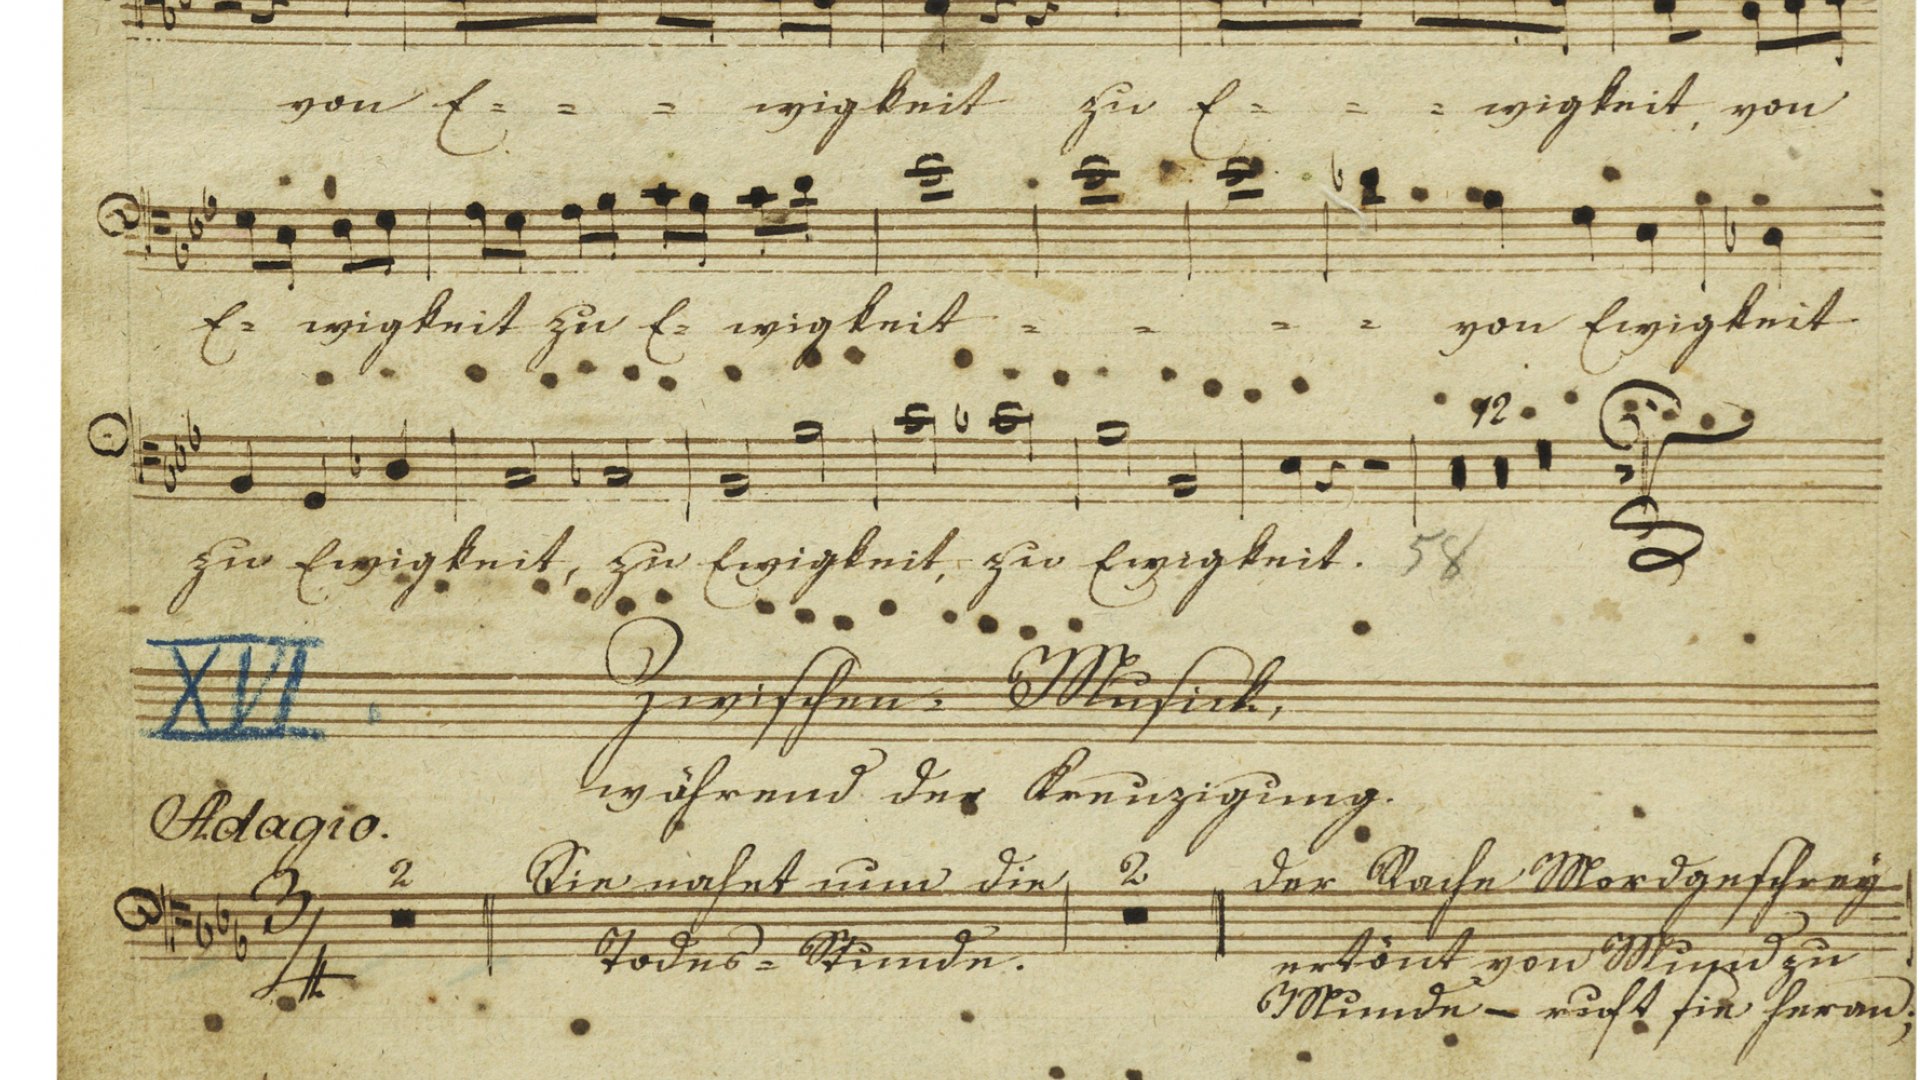 von E= = = wigkeit zu E= = = wigkeit, von
E= wigkeit zu E= wigkeit = = = = von Ewigkeit
12
zu Ewigkeit, zu Ewigkeit, zu Ewigkeit. 58
XVI
Zwischen= Musick,
während der Kreuzigung.
Adagio.
3/4 2 Sie nahet nun die 2 der Rache Mordgeschrey
Todes= Stunde. ertönt von Mund zu
Munde – ruft sie heran;